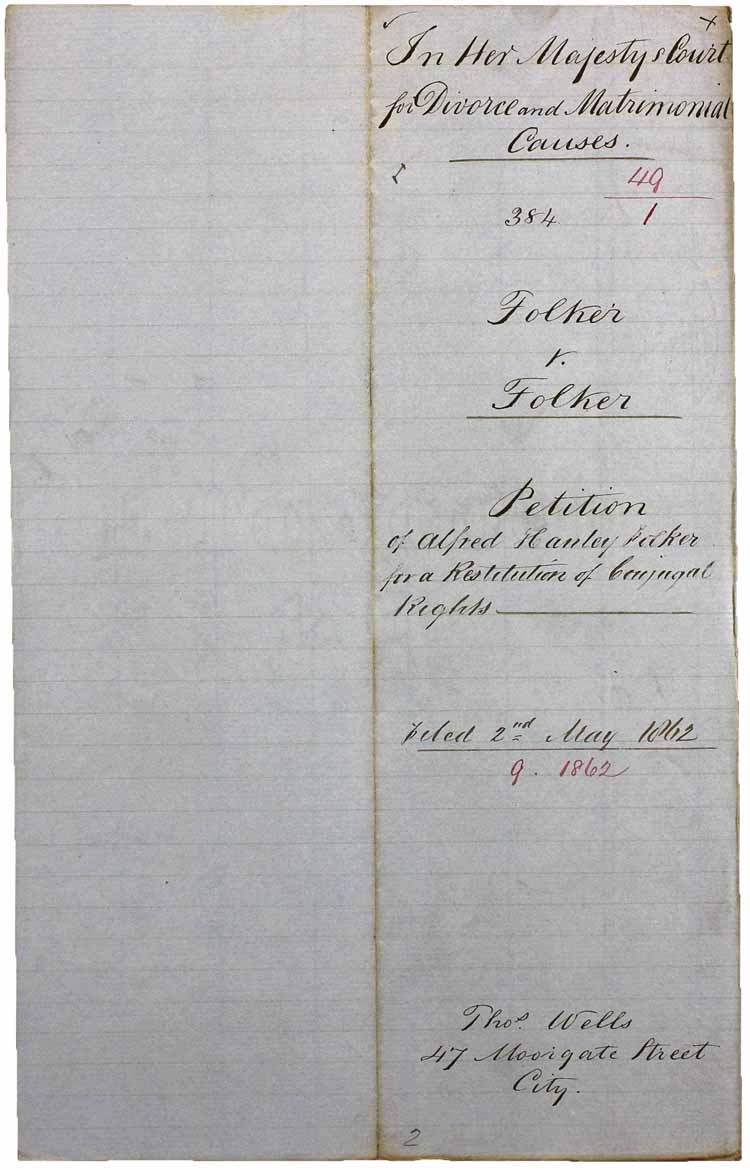 In Her Majestys Court
for Divorce and Matrimonial
Causes.
49
384 1
Folker
v.
Folker
Petition
of Alfred Hanley Folker
for a Restitution of Conjugal
Rights
Filed 2nd May 1862
9. 1862
Thos. Wells
47 Moorgate Street
City.
2